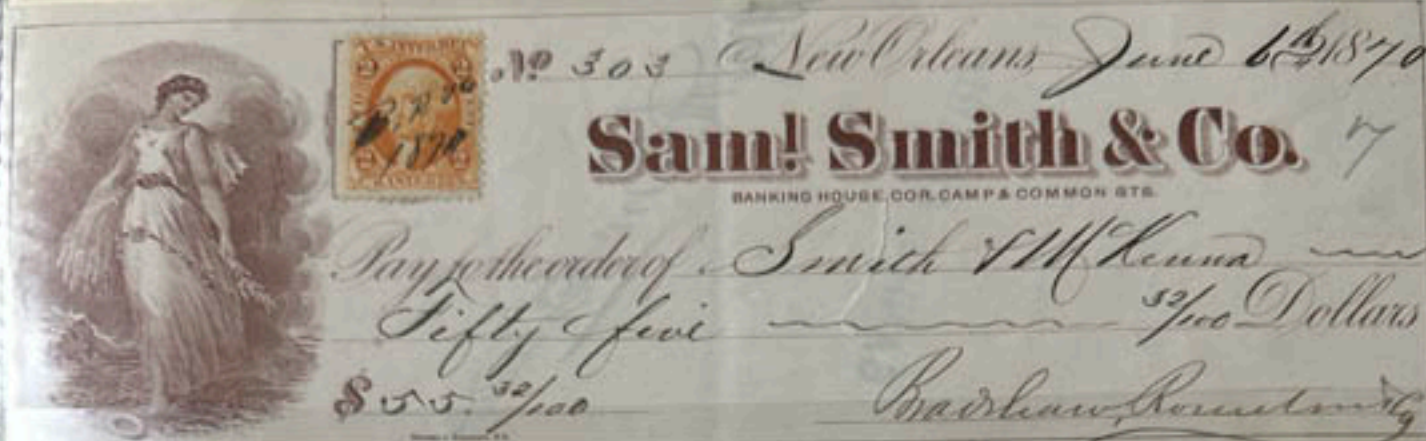 No 303 New Orleans June 6th 1870
Saml. Smith & Co.
BANKING HOUSE, COR. CAMP & COMMON STS.
Pay to the order of Smith & McKenna
Fifty five 32/100 Dollars
$55.32/100
Bradshaw
1870